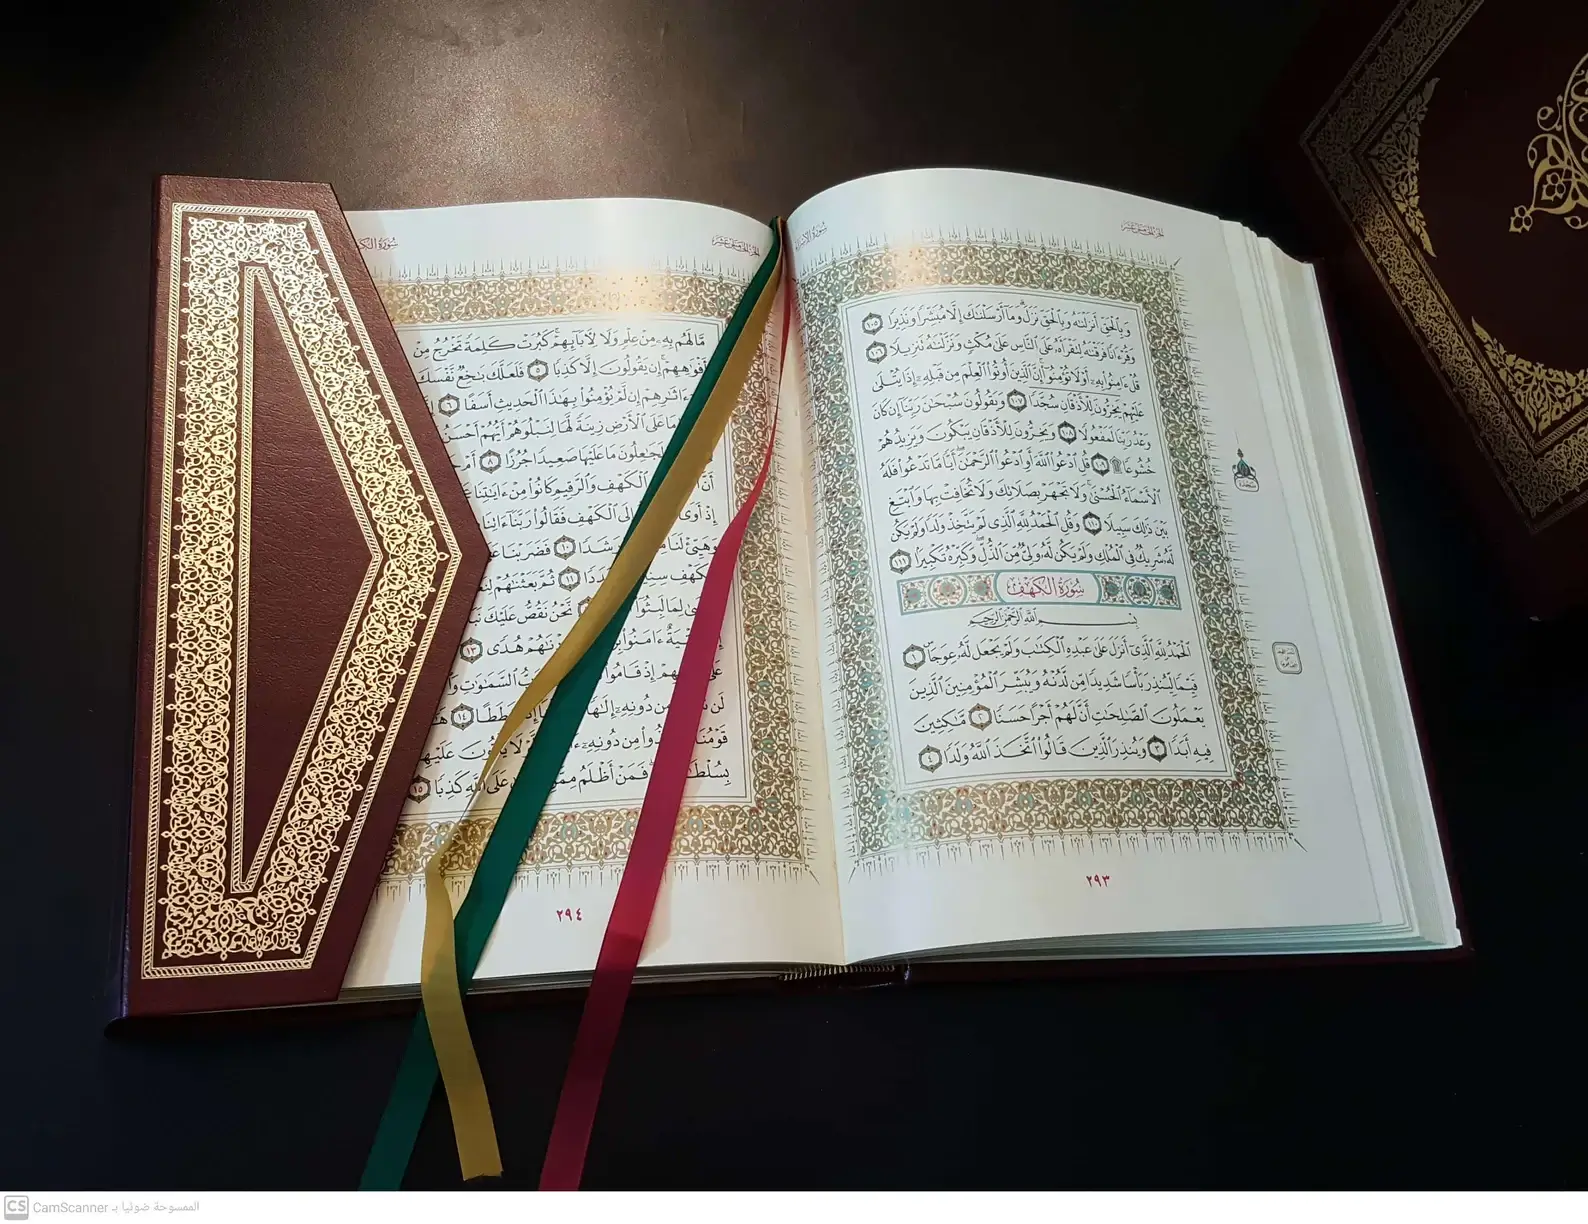 سُورَةُ الإسراء
الجزء الخامس عشر
وَبِالْحَقِّ أَنزَلْنَاهُ وَبِالْحَقِّ نَزَلَ وَمَا أَرْسَلْنَاكَ إِلَّا مُبَشِّرًا وَنَذِيرًا ١٠٥
وَقُرْءَانًا فَرَقْنَاهُ لِتَقْرَأَهُ عَلَى النَّاسِ عَلَى مُكْثٍ وَنَزَّلْنَاهُ تَنزِيلًا ١٠٦
قُلْ ءَامِنُوا بِهِ أَوْ لَا تُؤْمِنُوا إِنَّ الَّذِينَ أُوتُوا الْعِلْمَ مِن قَبْلِهِ إِذَا يُتْلَى
عَلَيْهِمْ يَخِرُّونَ لِلْأَذْقَانِ سُجَّدًا ١٠٧ وَيَقُولُونَ سُبْحَانَ رَبِّنَا إِن كَانَ
وَعْدُ رَبِّنَا لَمَفْعُولًا ١٠٨ وَيَخِرُّونَ لِلْأَذْقَانِ يَبْكُونَ وَيَزِيدُهُمْ
خُشُوعًا ۩ ١٠٩ قُلِ ادْعُوا اللَّهَ أَوِ ادْعُوا الرَّحْمَنَ أَيًّا مَّا تَدْعُوا فَلَهُ
الْأَسْمَاءُ الْحُسْنَى وَلَا تَجْهَرْ بِصَلَاتِكَ وَلَا تُخَافِتْ بِهَا وَابْتَغِ
بَيْنَ ذَلِكَ سَبِيلًا ١١٠ وَقُلِ الْحَمْدُ لِلَّهِ الَّذِي لَمْ يَتَّخِذْ وَلَدًا وَلَمْ يَكُن
لَّهُ شَرِيكٌ فِي الْمُلْكِ وَلَمْ يَكُن لَّهُ وَلِيٌّ مِّنَ الذُّلِّ وَكَبِّرْهُ تَكْبِيرًا ١١١
سُورَةُ الْكَهْفِ
بِسْمِ اللَّهِ الرَّحْمَنِ الرَّحِيمِ
الْحَمْدُ لِلَّهِ الَّذِي أَنزَلَ عَلَى عَبْدِهِ الْكِتَابَ وَلَمْ يَجْعَل لَّهُ عِوَجَا ۜ ١
قَيِّمًا لِّيُنذِرَ بَأْسًا شَدِيدًا مِّن لَّدُنْهُ وَيُبَشِّرَ الْمُؤْمِنِينَ الَّذِينَ
يَعْمَلُونَ الصَّالِحَاتِ أَنَّ لَهُمْ أَجْرًا حَسَنًا ٢ مَّاكِثِينَ
فِيهِ أَبَدًا ٣ وَيُنذِرَ الَّذِينَ قَالُوا اتَّخَذَ اللَّهُ وَلَدًا ٤
٢٩٣
الجزء الخامس عشر
سُورَةُ الْكَ
مَّا لَهُم بِهِ مِنْ عِلْمٍ وَلَا لِآبَائِهِمْ كَبُرَتْ كَلِمَةً تَخْرُجُ مِنْ
أَفْوَاهِهِمْ إِن يَقُولُونَ إِلَّا كَذِبًا ٥ فَلَعَلَّكَ بَاخِعٌ نَّفْسَكَ
ءَاثَارِهِمْ إِن لَّمْ يُؤْمِنُوا بِهَذَا الْحَدِيثِ أَسَفًا ٦
مَا عَلَى الْأَرْضِ زِينَةً لَّهَا لِنَبْلُوَهُمْ أَيُّهُمْ أَحْسَنُ
لَجَاعِلُونَ مَا عَلَيْهَا صَعِيدًا جُرُزًا ٨ أَمْ
أَنَّ الْكَهْفِ وَالرَّقِيمِ كَانُوا مِنْ ءَايَاتِنَا
إِذْ أَوَى إِلَى الْكَهْفِ فَقَالُوا رَبَّنَا ءَاتِنَا
وَهَيِّئْ لَنَا رَشَدًا ١٠ فَضَرَبْنَا
الْكَهْفِ سِنِينَ عَدَدًا ١١ ثُمَّ بَعَثْنَاهُمْ
لِمَا لَبِثُوا نَّحْنُ نَقُصُّ عَلَيْكَ
فِتْيَةٌ ءَامَنُوا وَزِدْنَاهُمْ هُدًى ١٣
عَلَى إِذْ قَامُوا السَّمَاوَاتِ
لَن مِن دُونِهِ إِلَهًا شَطَطًا ١٤
قَوْمُنَا مِن دُونِهِ لَّوْلَا يَأْتُونَ عَلَيْهِم
بِسُلْطَانٍ فَمَنْ أَظْلَمُ مِمَّنِ عَلَى اللَّهِ كَذِبًا ١٥
٢٩٤
CS CamScanner الممسوحة ضوئيا بـ